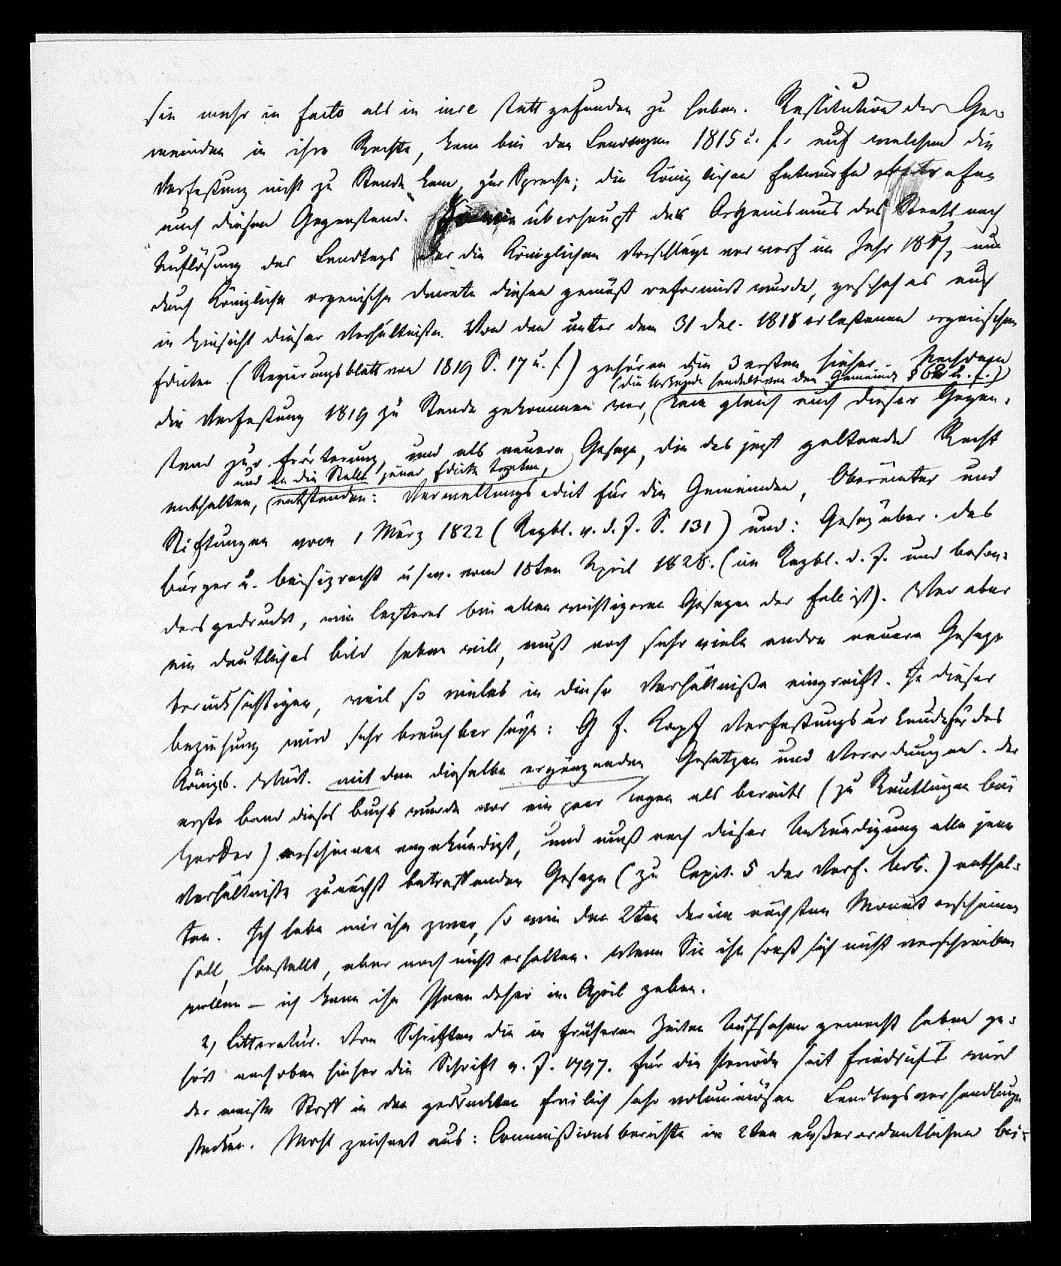 sie mehr in facto als in iure statt gefunden zu haben. Restitution der Ge-
meinden in ihre Rechte, kam bei den Landtagen 1815 u. f. auf welchen die
Verfaßung nicht zu Stande kam, zur Sprache; die Königlichen Entwürfe
auch diesen Gegenstand. überhaupt der Organismus des Staats nach
Auflösung des Landtags der die Königlichen Vorschläge verworf im Jahr 1817, nun
durch Königliche organische Decrete diesen gemäß reformirt wurde, geschah es auch
in Hinsicht dieser Verhältniße. Von den unter dem 31 Dec. 1818 erlaßenen organischen
Edicten (Regierungsblatt von 1819 S. 17 u. f.) gehören die 3 ersten hieher. Nachdem
(die Urkunde handelt von den Gemeinden § 62 u. f.)
die Verfaßung 1819 zu Stande gekommen war, kam gleich auch dieser Gegen-
stand zur Erörterung, und als neuere Geseze, die das jezt geltende Recht
und an die Stelle jener Edicte tretten,
enthalten, entstanden: Verwaltungsedict für die Gemeinden, Oberämter und
Stiftungen vom 1 März 1822 (Regbl. v. d. J. S. 131) und: Gesez über das
Bürger u. Beisizrecht u.s.w. vom 15ten April 1828. (im Regbl. d. J. und beson-
ders gedruckt, wie lezteres bei allen wichtigeren Gesezen der Fall ist). Wer aber
ein deutliches Bild haben will, muß noch sehr viele andre neuere Geseze
berücksichtigen, weil so vieles in diese Verhältniße eingreift. In dieser
Beziehung wird sehr brauchbar seyn: G F. Kapf Verfaßungsurkunde für das
Königr. Würt. mit den dieselbe ergänzenden Gesetzen und Verordnungen. Der
erste Band dieses Buchs wurde vor ein paar Tagen als bereits (zu Reutlingen bei
) erschienen angekündigt, und muß nach dieser Ankündigung alle jene
Verhältniße zunächst betreffenden Geseze (zu Capit. 5 der Verf. Urk.) enthal-
ten. Ich habe mir ihn zwar, so wie den 2ten der im nächsten Monat erscheinen
soll, bestellt, aber noch nicht erhalten. Wenn Sie ihn sonst sich nicht verschreiben
wollen – ich kann ihn Ihnen daher im April geben.
2) Litteratur. Von Schriften die in früheren Zeiten Aufsehen gemacht haben ge-
hört nach oben hieher die Schrift v. J. 1797. Für die Periode seit Friedrich I wird
der meiste Stoff in den gedruckten freilich sehr voluminösen Landtagsverhandlungen
stecken. Mohl zeichnet aus: Commißionsberichte im 2ten außerordentlichen Bei-